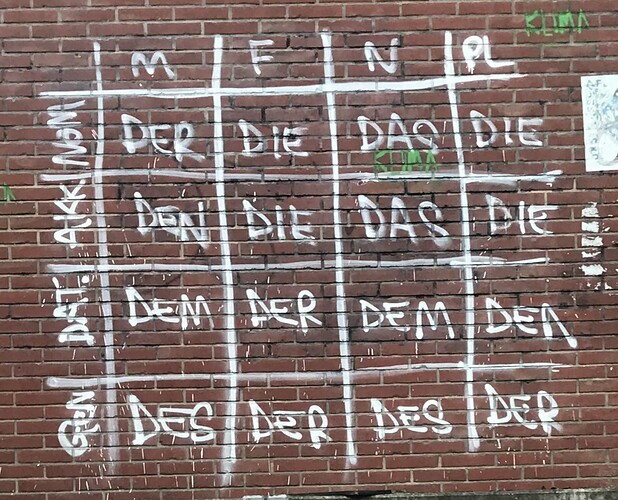 KLIMA
M F N PL
NOM DER DIE DAS DIE
KLIMA
AKK DEN DIE DAS DIE
DAT. DEM DER DEM DEN
GEN DES DER DES DER